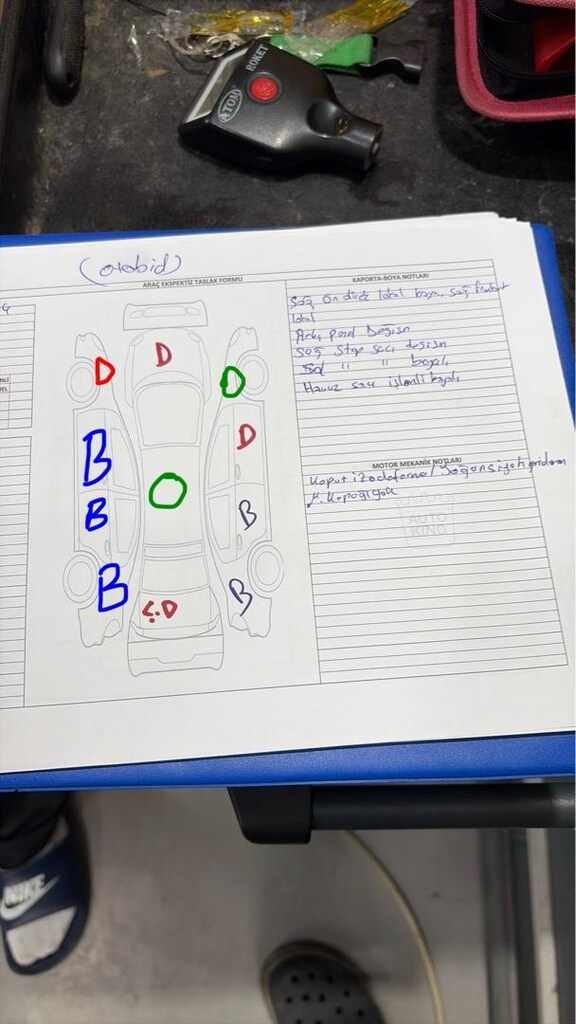 ATOM
ROKET
(otobid)
ARAÇ EKSPERTİZ TASLAK FORMU
KAPORTA-BOYA NOTLARI
Sağ ön direk lokal boya, sağ
lokal
Arka panel Değişen
Sağ Stop sacı değişen
Sol " " boyalı
Havuz sacı işlemli boyalı
MOTOR MEKANİK NOTLARI
Kaput izo deforme /
M. Kapağı yok
AUTO
KING
D
D
D
B
B
B
B
B
Ç.D
NIKE